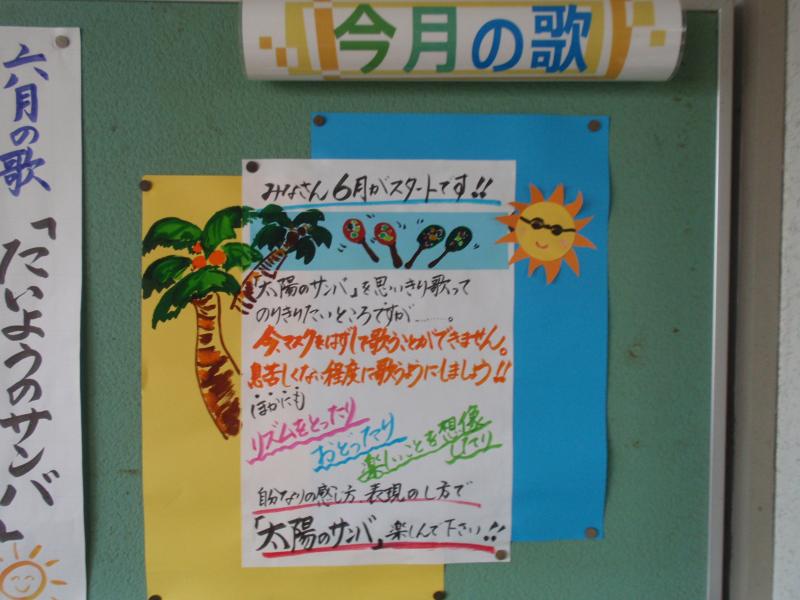 今月の歌
六月の歌
「たいようのサンバ」
みなさん 6月がスタートです!!
「太陽のサンバ」を思いきり歌って
のりきりたいところですが……。
今、マスクをはずして歌うことができません。
息苦しくない程度に歌うようにしましょう!!
ほかにも
リズムをとったり
おどったり
楽しいことを想像
したり
自分なりの感じ方、表現のし方で
「太陽のサンバ」楽しんで下さい!!